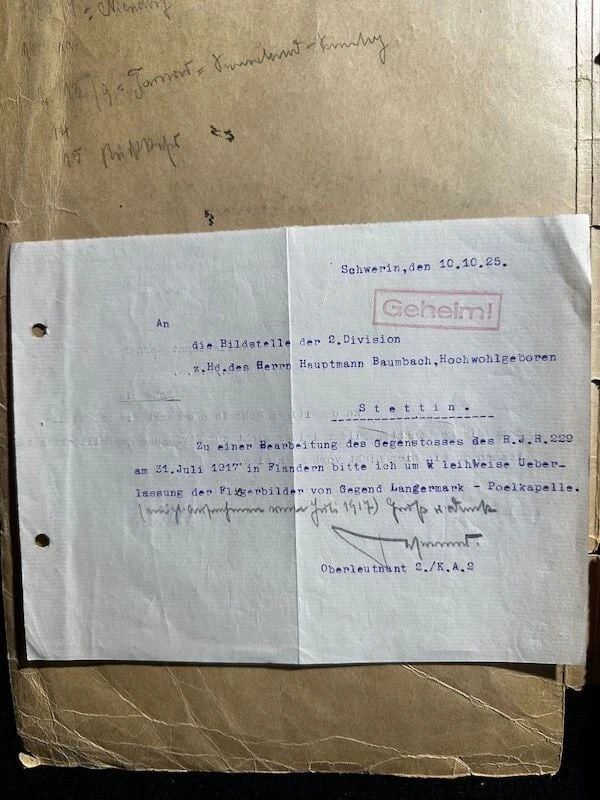 = Niendorf
12/9 = Tarnow =
14
15
Schwerin,den 10.10.25.
Geheim!
An
die Bildstelle der 2.Division
z.Hd.des Herrn Hauptmann Baumbach,Hochwohlgeboren
Stettin.
Zu einer Bearbeitung des Gegenstosses des R.J.R.229
am 31.Juli 1917 in Flandern bitte ich um leihWeise Ueber-
lassung der Fliegerbilder von Gegend Langermark - Poelkapelle.
Juli 1917)
Oberleutnant 2./K.A.2